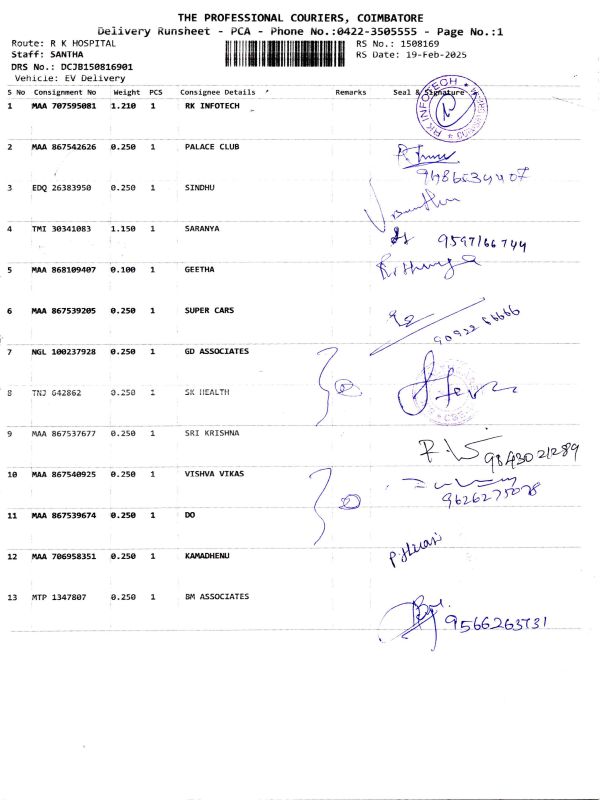 THE PROFESSIONAL COURIERS, COIMBATORE
Delivery Runsheet - PCA - Phone No.:0422-3505555 - Page No.:1
Route: R K HOSPITAL RS No.: 1508169
Staff: SANTHA RS Date: 19-Feb-2025
DRS No.: DCJB150816901
Vehicle: EV Delivery
S No Consignment No Weight PCS Consignee Details Remarks Seal & Signature
1 MAA 707595081 1.210 1 RK INFOTECH
RK INFOTECH
2 MAA 867542626 0.250 1 PALACE CLUB
3 EDQ 26383950 0.250 1 SINDHU
4 TMI 30341083 1.150 1 SARANYA
9597166744
5 MAA 868109407 0.100 1 GEETHA
6 MAA 867539205 0.250 1 SUPER CARS
90922 66666
7 NGL 100237928 0.250 1 GD ASSOCIATES
8 TNJ 642862 0.250 1 SK HEALTH
9 MAA 867537677 0.250 1 SRI KRISHNA
9843021289
10 MAA 867540925 0.250 1 VISHVA VIKAS
9626275078
11 MAA 867539674 0.250 1 DO
12 MAA 706958351 0.250 1 KAMADHENU
13 MTP 1347807 0.250 1 BM ASSOCIATES
9566263731